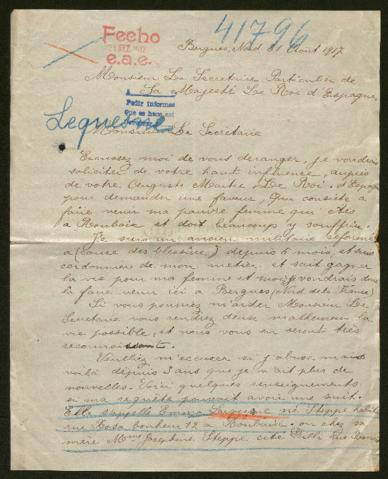 Fecho
e.a.e.
41796
Bergues, Nord 31 Aout 1917
Monsieur Le Secretaire Particulier de
Sa Majesté Le Roi d'Espagne,
Pedir informes
Lequesne
Monsieur Le Secrétaire
Excusez moi de vous déranger, je voudrais
solicité de votre haut influence, auprès
de votre Auguste Maitre Le Roi d'Espagne
pour demander une faveur, qui consiste à
faire venir ma pauvre femme qui est
à Roubaix et doit beaucoup y souffrir.
Je suis un ancien militaire réformé
à (cause des blessures) depuis 6 mois, et suis
cordonnier de mon métier, et sait gagner
la vie pour ma femme et moi, je voudrais donc
la faire venir ici à Bergues (Nord de la France)
Si vous pouviez m'aider Monsieur Le
Secretaire vous rendriez deux malheureux la
vie possible, et nous vous en seront très
reconnaissants.
Veuillez m'excuser si j'abuse, mais
voilà depuis 3 ans que je n'ai plus de
nouvelles. Voici quelques renseignements
si ma requête pouvait avoir une suite.
Elle s'appelle Emma Lequesne né Steppe habite
rue Rosa bonheur 12 à Roubaix ou chez sa
mère Mme Joséphine Steppe cité